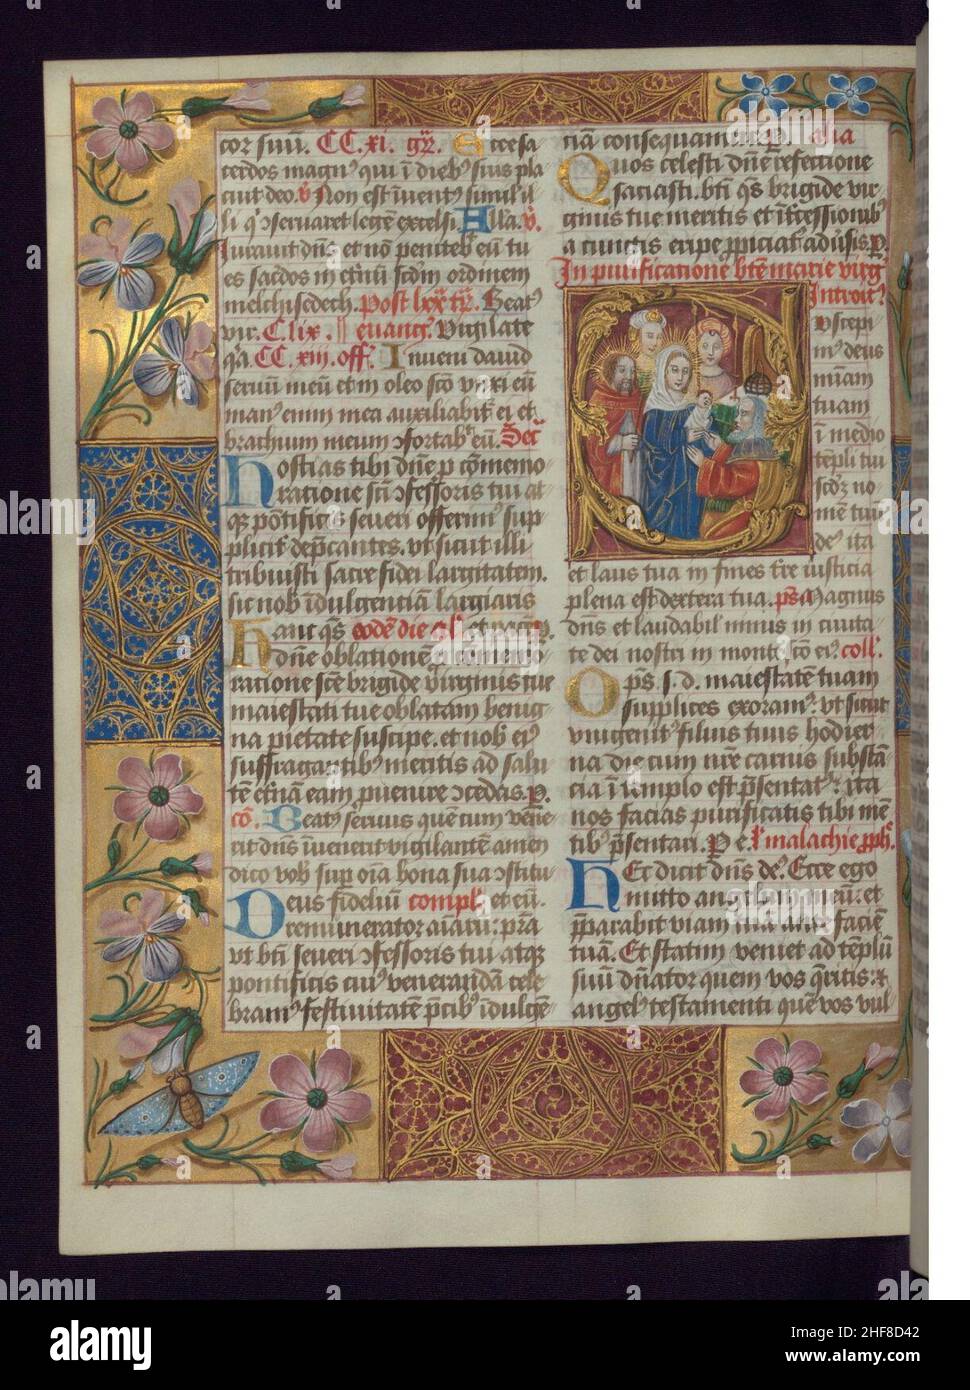 cor suū. CC.xi. gͬ. Ecce sa
cerdos magnꝰ qui ī diebꝰ suis pla
cuit deo. v̄ Non est īuentꝰ simil il
li qͥ ↄseruaret legē excelsi. Alla. v̄.
Iurauit dn̄s et nō penitebͭ eū tu
es sac̄dos in et̄nū scd̄m ordinem
melchisedech. Post lxx tͬ. Beatꝰ
vir. C.lix. euang. Vigilate
qͥa CC.xiii. off. Inueni dauid
seruū meū et in oleo scō vnxi eū
manꝰ enim mea auxiliabit ei et
brachium meum ↄfortabᵗ eū. Secͬ
Hostias tibi dn̄e p cōmemo
rationē scī ↄfessoris tui at
qꝫ pōtificis seueri offerimꝰ sup
pliciͭ dep̄cantes. vt sicut illi
tribuisti sacre fidei largitatem.
sic nob īdulgentiā largiaris
Hanc qs̄ eodē die et
dn̄e oblationē
ratione scē brigide virginis tue
maiestati tue oblatam benig
na pietate suscipe. et nob eiꝰ
suffragantibꝰ meritis ad salu
tē et̄nā eam puenire ↄcedas. p.
cō. Beatꝰ seruus quē cum vene
rit dn̄s īuenerit vigilantē amen
dico vob sup oīa bona sua ↄstitu
Deus fideliū compl. et eū.
remunerator aīarū: p̄sta
vt bt̄i seueri ↄfessoris tui atqꝫ
pontificis cuiꝰ venerandā cele
bramꝰ festiuitatē p̄cibꝰ īdulgē
ciā consequamur p. alia
Quos celesti dn̄e refectione
saciasti. bt̄e qs̄ brigide vir
ginis tue meritis et īt̄cessionibꝰ
a cunctis eripe p
In purificatione bt̄e marie virg
Introitꝰ
Suscepi
mꝰ deus
miām
tuam
ī medio
tēpli tui
scd̄ꝫ no
mē tuū
deꝰ ita
et laus tua in fines tr̄e iusticia
plena est dextera tua. ps̄. Magnus
dn̄s et laudabilꝭ nimis in ciuita
te dei nostri in monte scō eiꝰ. coll.
Ops̄ s. d. maiestatē tuam
supplices exoramꝰ: vt sicut
vnigenitꝰ filius tuus hodier
na die cum nr̄e carnis substā
cia ī templo est p̄sentatꝰ: ita
nos facias purificatis tibi mē
tibꝰ p̄sentari. P e. l' malachie pph̄.
Hec dicit dn̄s deꝰ. Ecce ego
mitto angelum meū: et
p̄parabit viam ante faciē
tuā. Et statim veniet ad tēplū
suū dn̄ator quem vos q̄ritis: ⁊
angelꝰ testamenti quē vos vul
alamy
Image ID: 2HF8D42
www.alamy.com